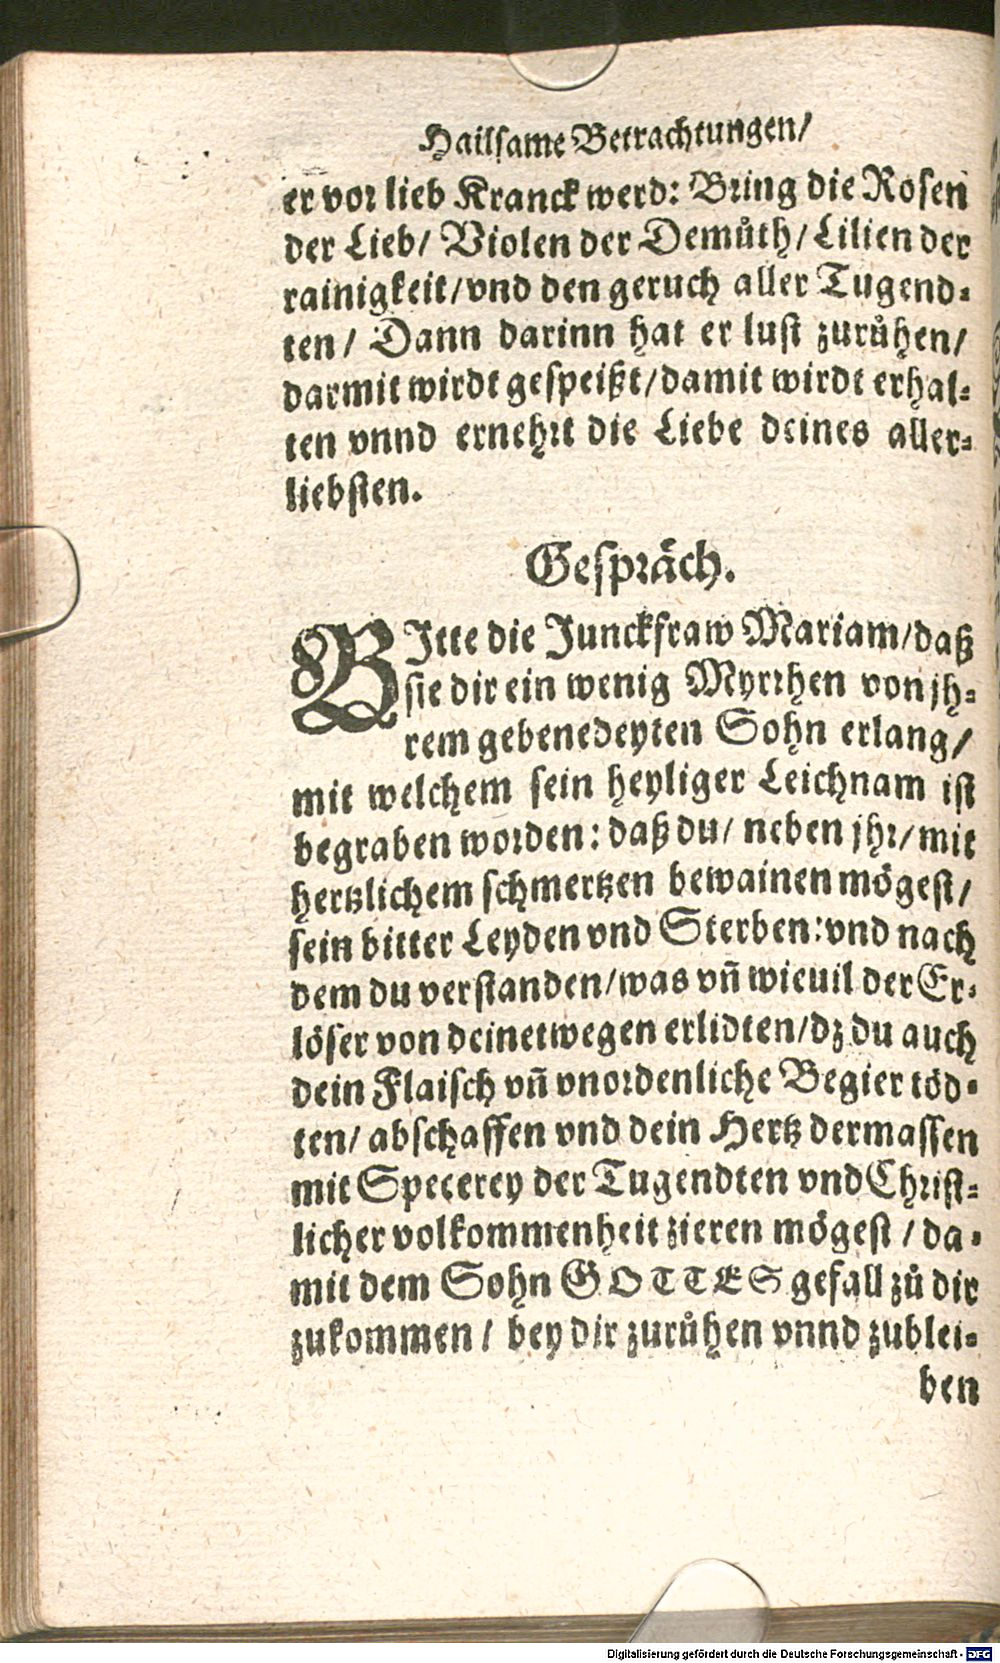 Hailsame Betrachtungen/
er vor lieb Kranck werd: Bring die Rosen
der Lieb/ Violen der Demuͦth/ Lilien der
rainigkeit/vnd den geruch aller Tugend-
ten/ Dann darinn hat er lust zuruͦhen/
darmit wirdt gespeißt/damit wirdt erhal-
ten vnnd ernehrt die Liebe deines aller-
liebsten.
Gespräch.
BItte die Junckfraw Mariam/daß
sie dir ein wenig Myrrhen von jh-
rem gebenedeyten Sohn erlang/
mit welchem sein heyliger Leichnam ist
begraben worden: daß du/ neben jhr/ mit
hertzlichem schmertzen bewainen mögest/
sein bitter Leyden vnd Sterben: vnd nach
dem du verstanden/was vñ wieuil der Er-
löser von deinetwegen erlidten/dz du auch
dein Flaisch vñ vnordenliche Begier töd-
ten/ abschaffen vnd dein Hertz dermassen
mit Specerey der Tugendten vnd Christ-
licher volkommenheit zieren mögest / da-
mit dem Sohn GOTTES gefall zuͦ dir
zukommen / bey dir zuruͦhen vnnd zublei-
ben
Digitalisierung gefördert durch die Deutsche Forschungsgemeinschaft - DFG